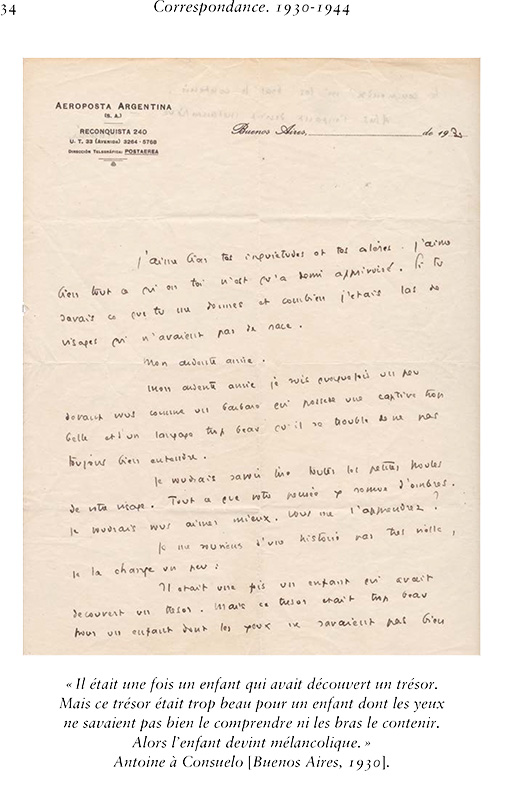 34
Correspondance. 1930-1944
AEROPOSTA ARGENTINA
(S. A.)
RECONQUISTA 240
U. T. 33 (AVENIDA) 3264-5768
DIRECCIÓN TELEGRÁFICA: POSTAEREA
Buenos Aires, de 193
J'aime bien tes inquiétudes et tes colères. J'aime
bien tout ce qui en toi n'est qu'à demi apprivoisé. Si tu
savais ce que tu me donnes et combien j'étais las de
visages qui n'avaient pas de race.
Mon ardente amie.
Mon ardente amie je suis quelquefois un peu
devant vous comme un barbare qui possède une captive trop
belle et d'un langage trop beau qu'il se trouble de ne pas
toujours bien entendre.
Je voudrais savoir lire toutes les petites houles
de votre visage. Tout ce que votre pensée y remue d'ombres.
Je voudrais vous aimer mieux. Vous me l'apprendrez ?
Je me souviens d'une histoire pas très vieille,
je la change un peu :
Il était une fois un enfant qui avait
découvert un trésor. Mais ce trésor était trop beau
pour un enfant dont les yeux ne savaient pas bien
« Il était une fois un enfant qui avait découvert un trésor.
Mais ce trésor était trop beau pour un enfant dont les yeux
ne savaient pas bien le comprendre ni les bras le contenir.
Alors l'enfant devint mélancolique. »
Antoine à Consuelo [Buenos Aires, 1930].